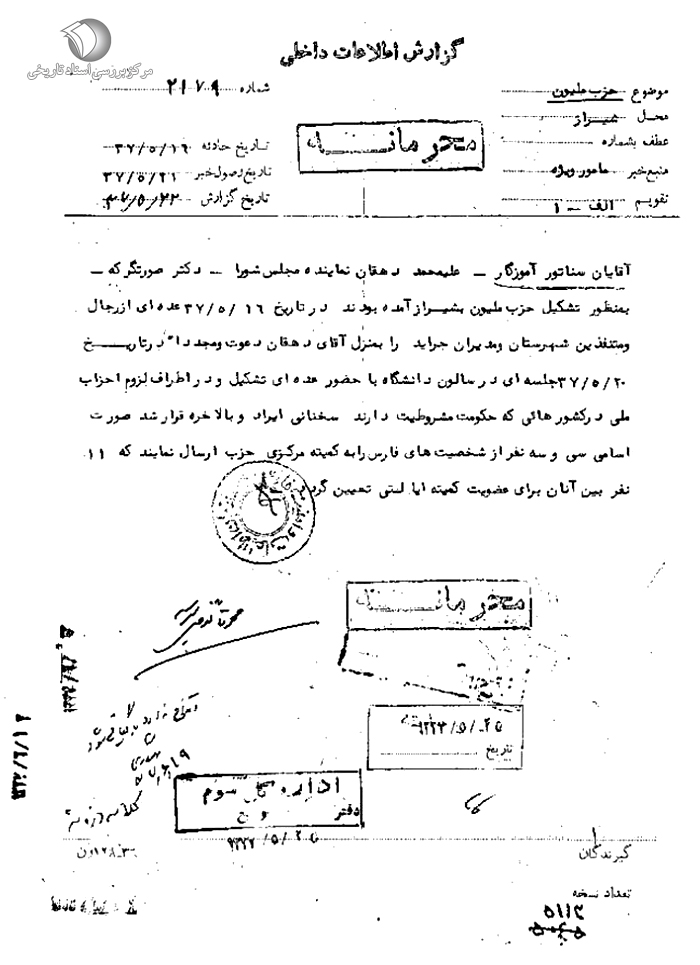 مرکز بررسی اسناد تاریخی
گزارش اطلاعات داخلی
موضوع حزب ملیون
شماره ۲۱۷۹
محل شیراز
عطف بشماره
محرمانه
تاریخ حادثه ۳۷/۵/۱۶
منبع خبر مامور ویژه
تاریخ وصول خبر ۳۷/۵/۲۱
تقویم الف - ۱
تاریخ گزارش ۳۷/۵/۲۲
آقایان سناتور آموزگار – علیمحمد دهقان نماینده مجلس شورا – دکتر صورتگر که –
بمنظور تشکیل حزب ملیون بشیراز آمده بودند در تاریخ ۳۷/۵/۱۶ عده ای از رجال
ومتنفذین شهرستان ومدیران جراید را بمنزل آقای دهقان دعوت ومجددا" درتاریخ
۳۷/۵/۲۰ جلسه ای در سالون دانشگاه با حضور عده ای تشکیل و در اطراف لزوم احزاب
ملی درکشور هائی که حکومت مشروطیت دارند سخنانی ایراد و بالاخره قرار شد صورت
اسامی سی و سه نفر از شخصیت های فارس رابه کمیته مرکزی حزب ارسال نمایند که ۱۱
نفر بین آنان برای عضویت کمیته ایالتی تعیین گردد
محرمانه
۲۵/۵/
تاریخ
اداره کل سوم
دفتر
۲۵/۵/
گیرندگان
تعداد نسخه
۵۱۱۲